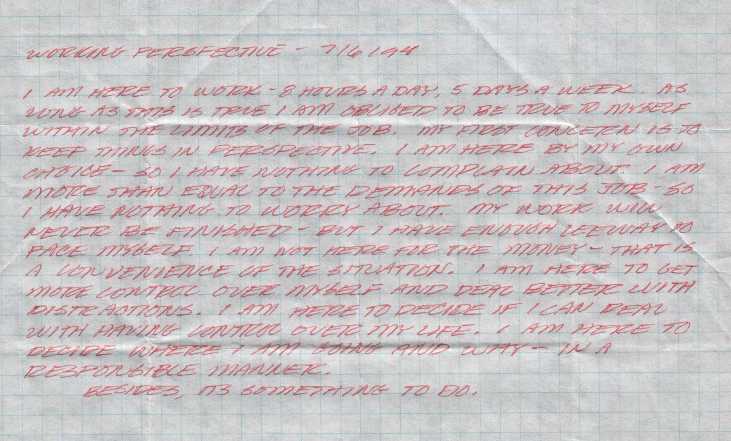 WORKING PERSPECTIVE - 7/6/94
I AM HERE TO WORK - 8 HOURS A DAY, 5 DAYS A WEEK. AS
LONG AS THIS IS TRUE I AM OBLIGED TO BE TRUE TO MYSELF
WITHIN THE LIMITS OF THE JOB. MY FIRST CONCERN IS TO
KEEP THINGS IN PERSPECTIVE. I AM HERE BY MY OWN
CHOICE - SO I HAVE NOTHING TO COMPLAIN ABOUT. I AM
MORE THAN EQUAL TO THE DEMANDS OF THIS JOB - SO
I HAVE NOTHING TO WORRY ABOUT. MY WORK WILL
NEVER BE FINISHED - BUT I HAVE ENOUGH LEEWAY TO
FACE MYSELF. I AM NOT HERE FOR THE MONEY - THAT IS
A CONVENIENCE OF THE SITUATION. I AM HERE TO GET
MORE CONTROL OVER MYSELF AND DEAL BETTER WITH
DISTRACTIONS. I AM HERE TO DECIDE IF I CAN DEAL
WITH HAVING CONTROL OVER MY LIFE. I AM HERE TO
DECIDE WHERE I AM GOING AND WHY - IN A
RESPONSIBLE MANNER.
BESIDES, ITS SOMETHING TO DO.